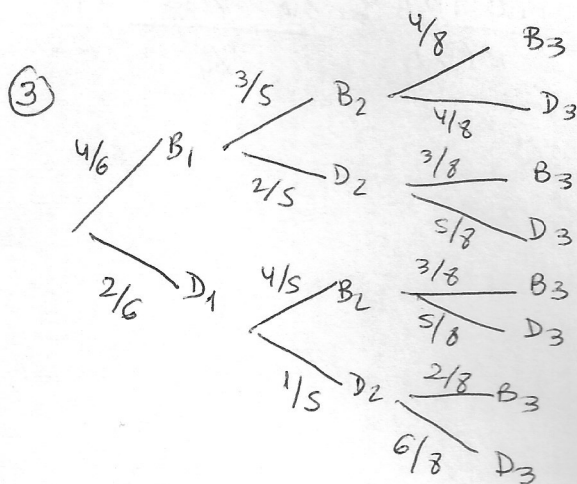 4/8 B3
③ 3/5 B2 4/8 D3
4/6 B1 2/5 D2 3/8 B3
5/8 D3
2/6 D1 4/5 B2 3/8 B3
5/8 D3
1/5 D2 2/8 B3
6/8 D3